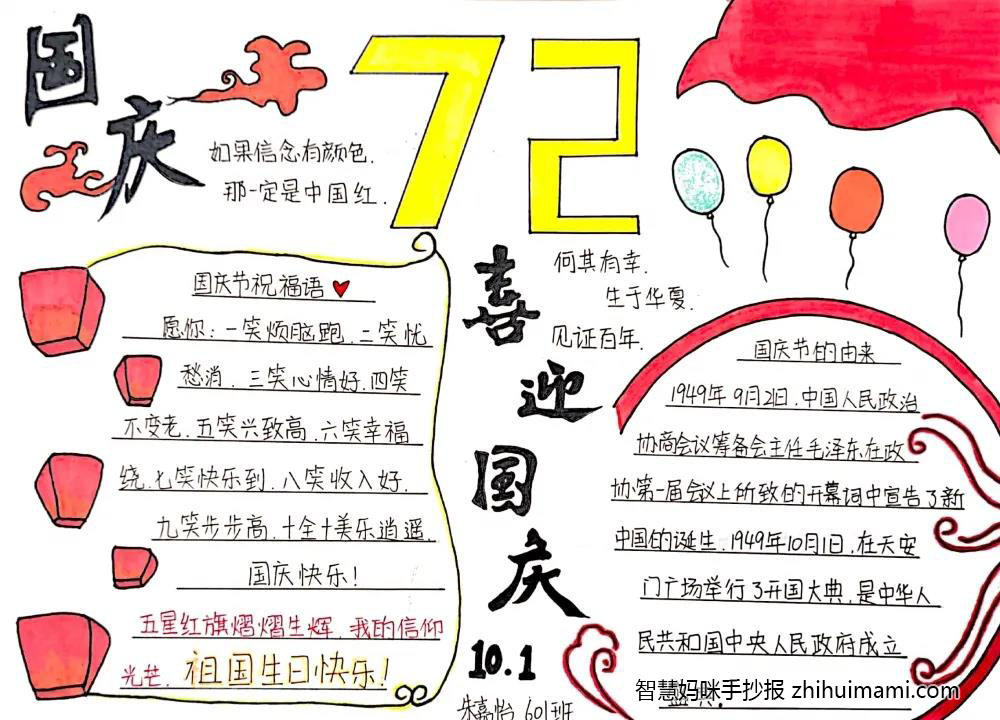 国庆
72
如果信念有颜色.
那一定是中国红.
国庆节祝福语
愿你:一笑烦脑跑.二笑忧
愁消.三笑心情好.四笑
不变老.五笑兴致高.六笑幸福
绕.七笑快乐到.八笑收入好.
九笑步步高.十全十美乐逍遥.
国庆快乐!
五星红旗熠熠生辉.我的信仰
光芒.祖国生日快乐!
喜迎国庆
10.1
何其有幸.
生于华夏.
见证百年.
朱嘉怡 601班
国庆节的由来
1949年9月21日.中国人民政治
协商会议筹备会主任毛泽东在政
协第一届会议上所致的开幕词中宣告了新
中国的诞生.1949年10月1日.在天安
门广场举行了开国大典.是中华人
民共和国中央人民政府成立
盛典.
智慧妈咪手抄报 zhihuimami.com